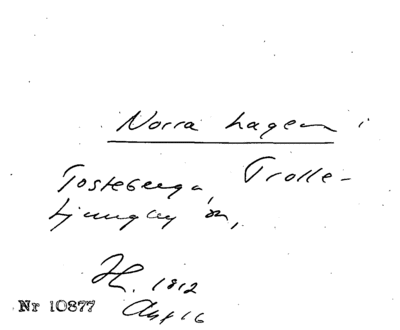 Norra Lagen i
Tosteberga, Trolle-
ljungby sn,
H. 1812
Akt 16
Nr 10877